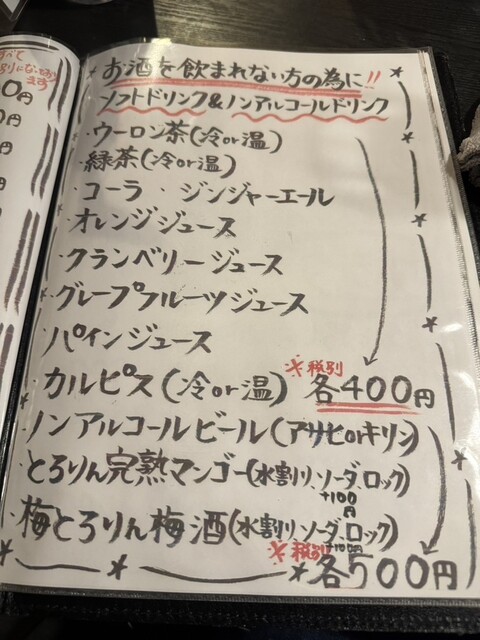 すべて
0円
0円
円
円
お酒を飲まれない方の為に!!
ソフトドリンク&ノンアルコールドリンク
・ウーロン茶(冷or温)
・緑茶(冷or温)
・コーラ ・ジンジャーエール
・オレンジジュース
・クランベリージュース
・グレープフルーツジュース
・パインジュース
・カルピス(冷or温)
※税別
各400円
・ノンアルコールビール(アサヒorキリン)
・とろりん完熟マンゴー(水割り、ソーダ、ロック)
+100円
・梅とろりん梅酒(水割り、ソーダ、ロック)
+100円
※税別
各500円